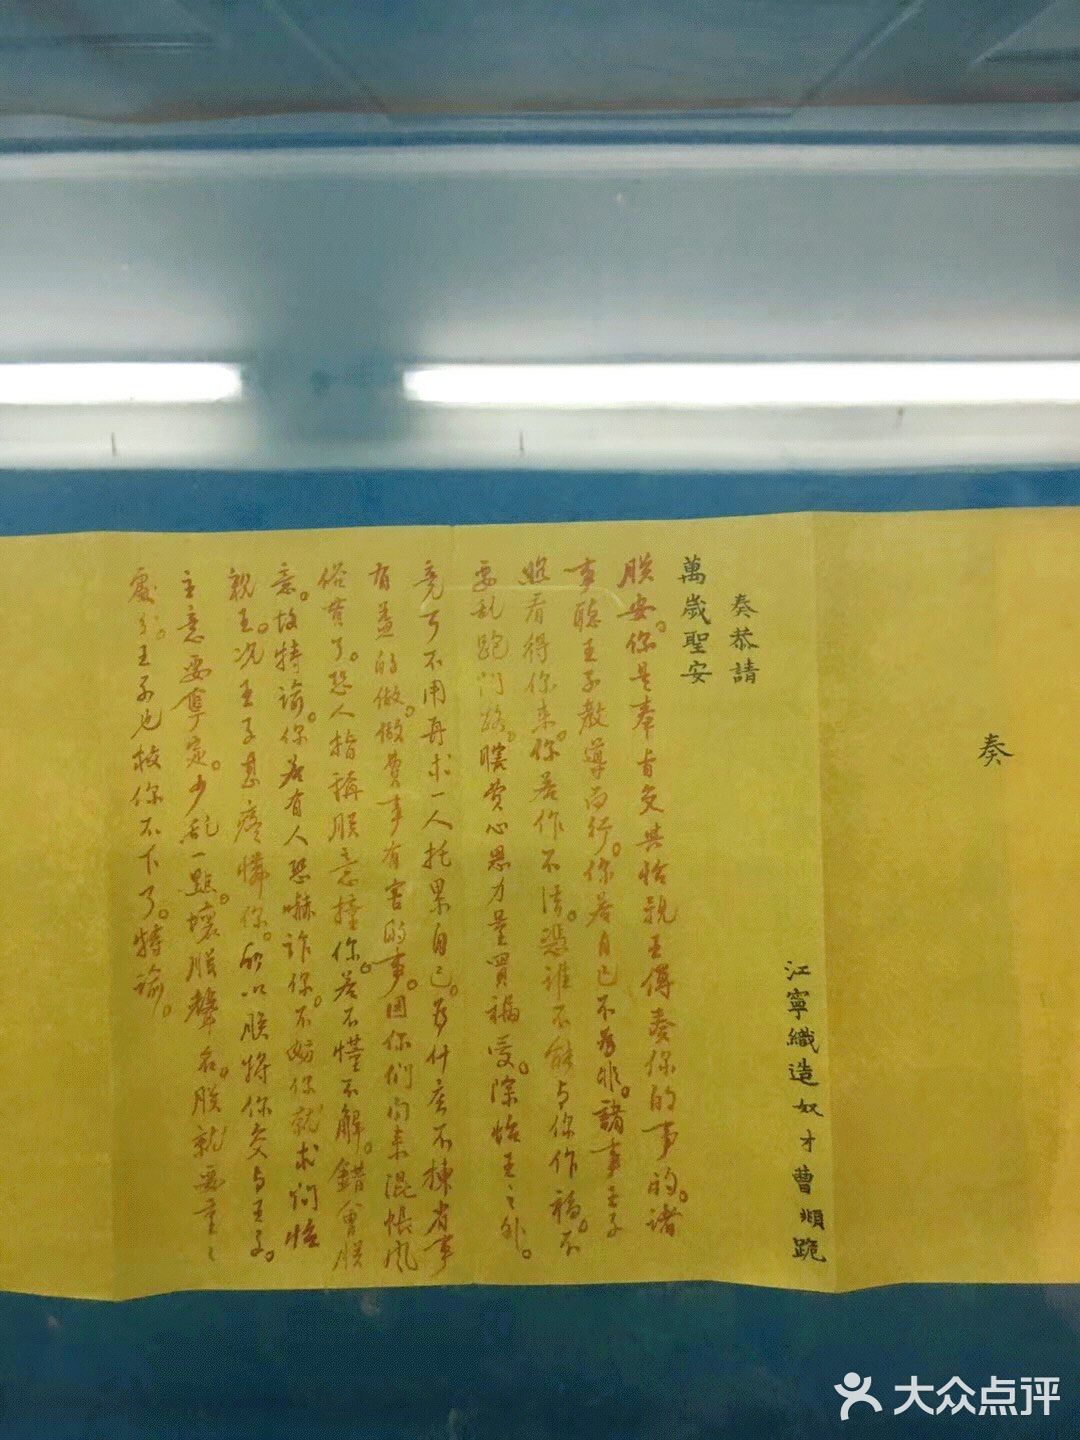 奏
江寧織造奴才曹頫跪
奏恭請
萬歲聖安
朕安。你是奉旨交與怡親王傳奏你的事的。諸
事聽王子教導而行。你若自己不為非。諸事王子
照看得你來。你若作不法。憑誰不能与你作福。不
要乱跑门路。瞎费心思力量買禍受。除怡王之外。
竟可不用再求一人托累自己。為什庅不揀省事
有益的做。做費事有害的事。因你们向来混帐风
俗貫了。恐人指稱朕意撞你。若不懂不解。錯會朕
意。故特諭。你若有人恐嚇詐你。不妨你就求问怡
親王。况王子甚疼憐你。所以朕將你交与王子。
主意要拿定。少乱一點。壞朕聲名。朕就要重々
處分。王子也救你不下了。特諭。
大众点评